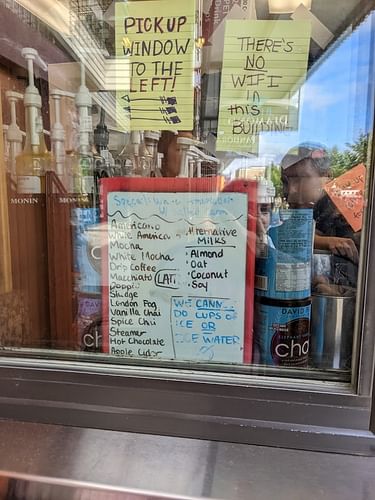 PICKUP
WINDOW
TO THE
LEFT!
THERE'S
NO
WIFI
in
this
BUILDING
MONIN
MONIN
Americano
White America
Mocha
White Mocha
Drip Coffee
Macchiato
Doppio
Sludge
London Fog
Vanilla Chai
Spice Chai
Steamer
Hot Chocolate
Apple Cider
Alternative
Milks
• Almond
• Oat
• Coconut
• Soy
WE CANN
DO CUPS OF
ICE OR
ICE WATER
DAVID
cha